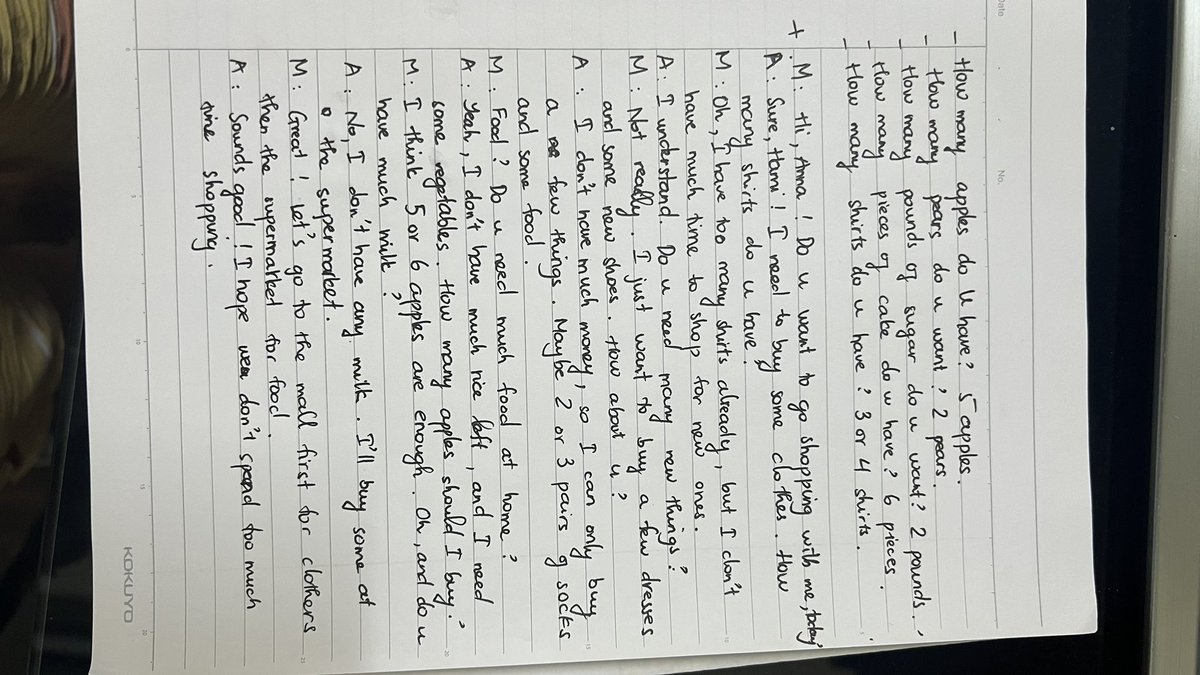 Date
No.
- How many apples do u have? 5 apples.
- How many pears do u want? 2 pears.
- How many pounds of sugar do u want? 2 pounds.
- How many pieces of cake do u have? 6 pieces.
- How many shirts do u have? 3 or 4 shirts.
+ M: Hi, Anna! Do u want to go shopping with me, today?
A: Sure, Hami! I need to buy some clothes. How
many shirts do u have?
M: Oh, I have too many shirts already, but I don't
have much time to shop for new ones.
A: I understand. Do u need many new things?
M: Not really. I just want to buy a few dresses
and some new shoes. How about u?
A: I don't have much money, so I can only buy
a few things. Maybe 2 or 3 pairs of socks
and some food.
M: Food? Do u need much food at home?
A: Yeah, I don't have much rice left, and I need
some vegetables. How many apples should I buy?
M: I think 5 or 6 apples are enough. Oh, and do u
have much milk?
A: No, I don't have any milk. I'll buy some at
the supermarket.
M: Great! Let's go to the mall first for clothers
then the supermarket for food.
A: Sounds good! I hope we don't spend too much
time shopping.
KOKUYO